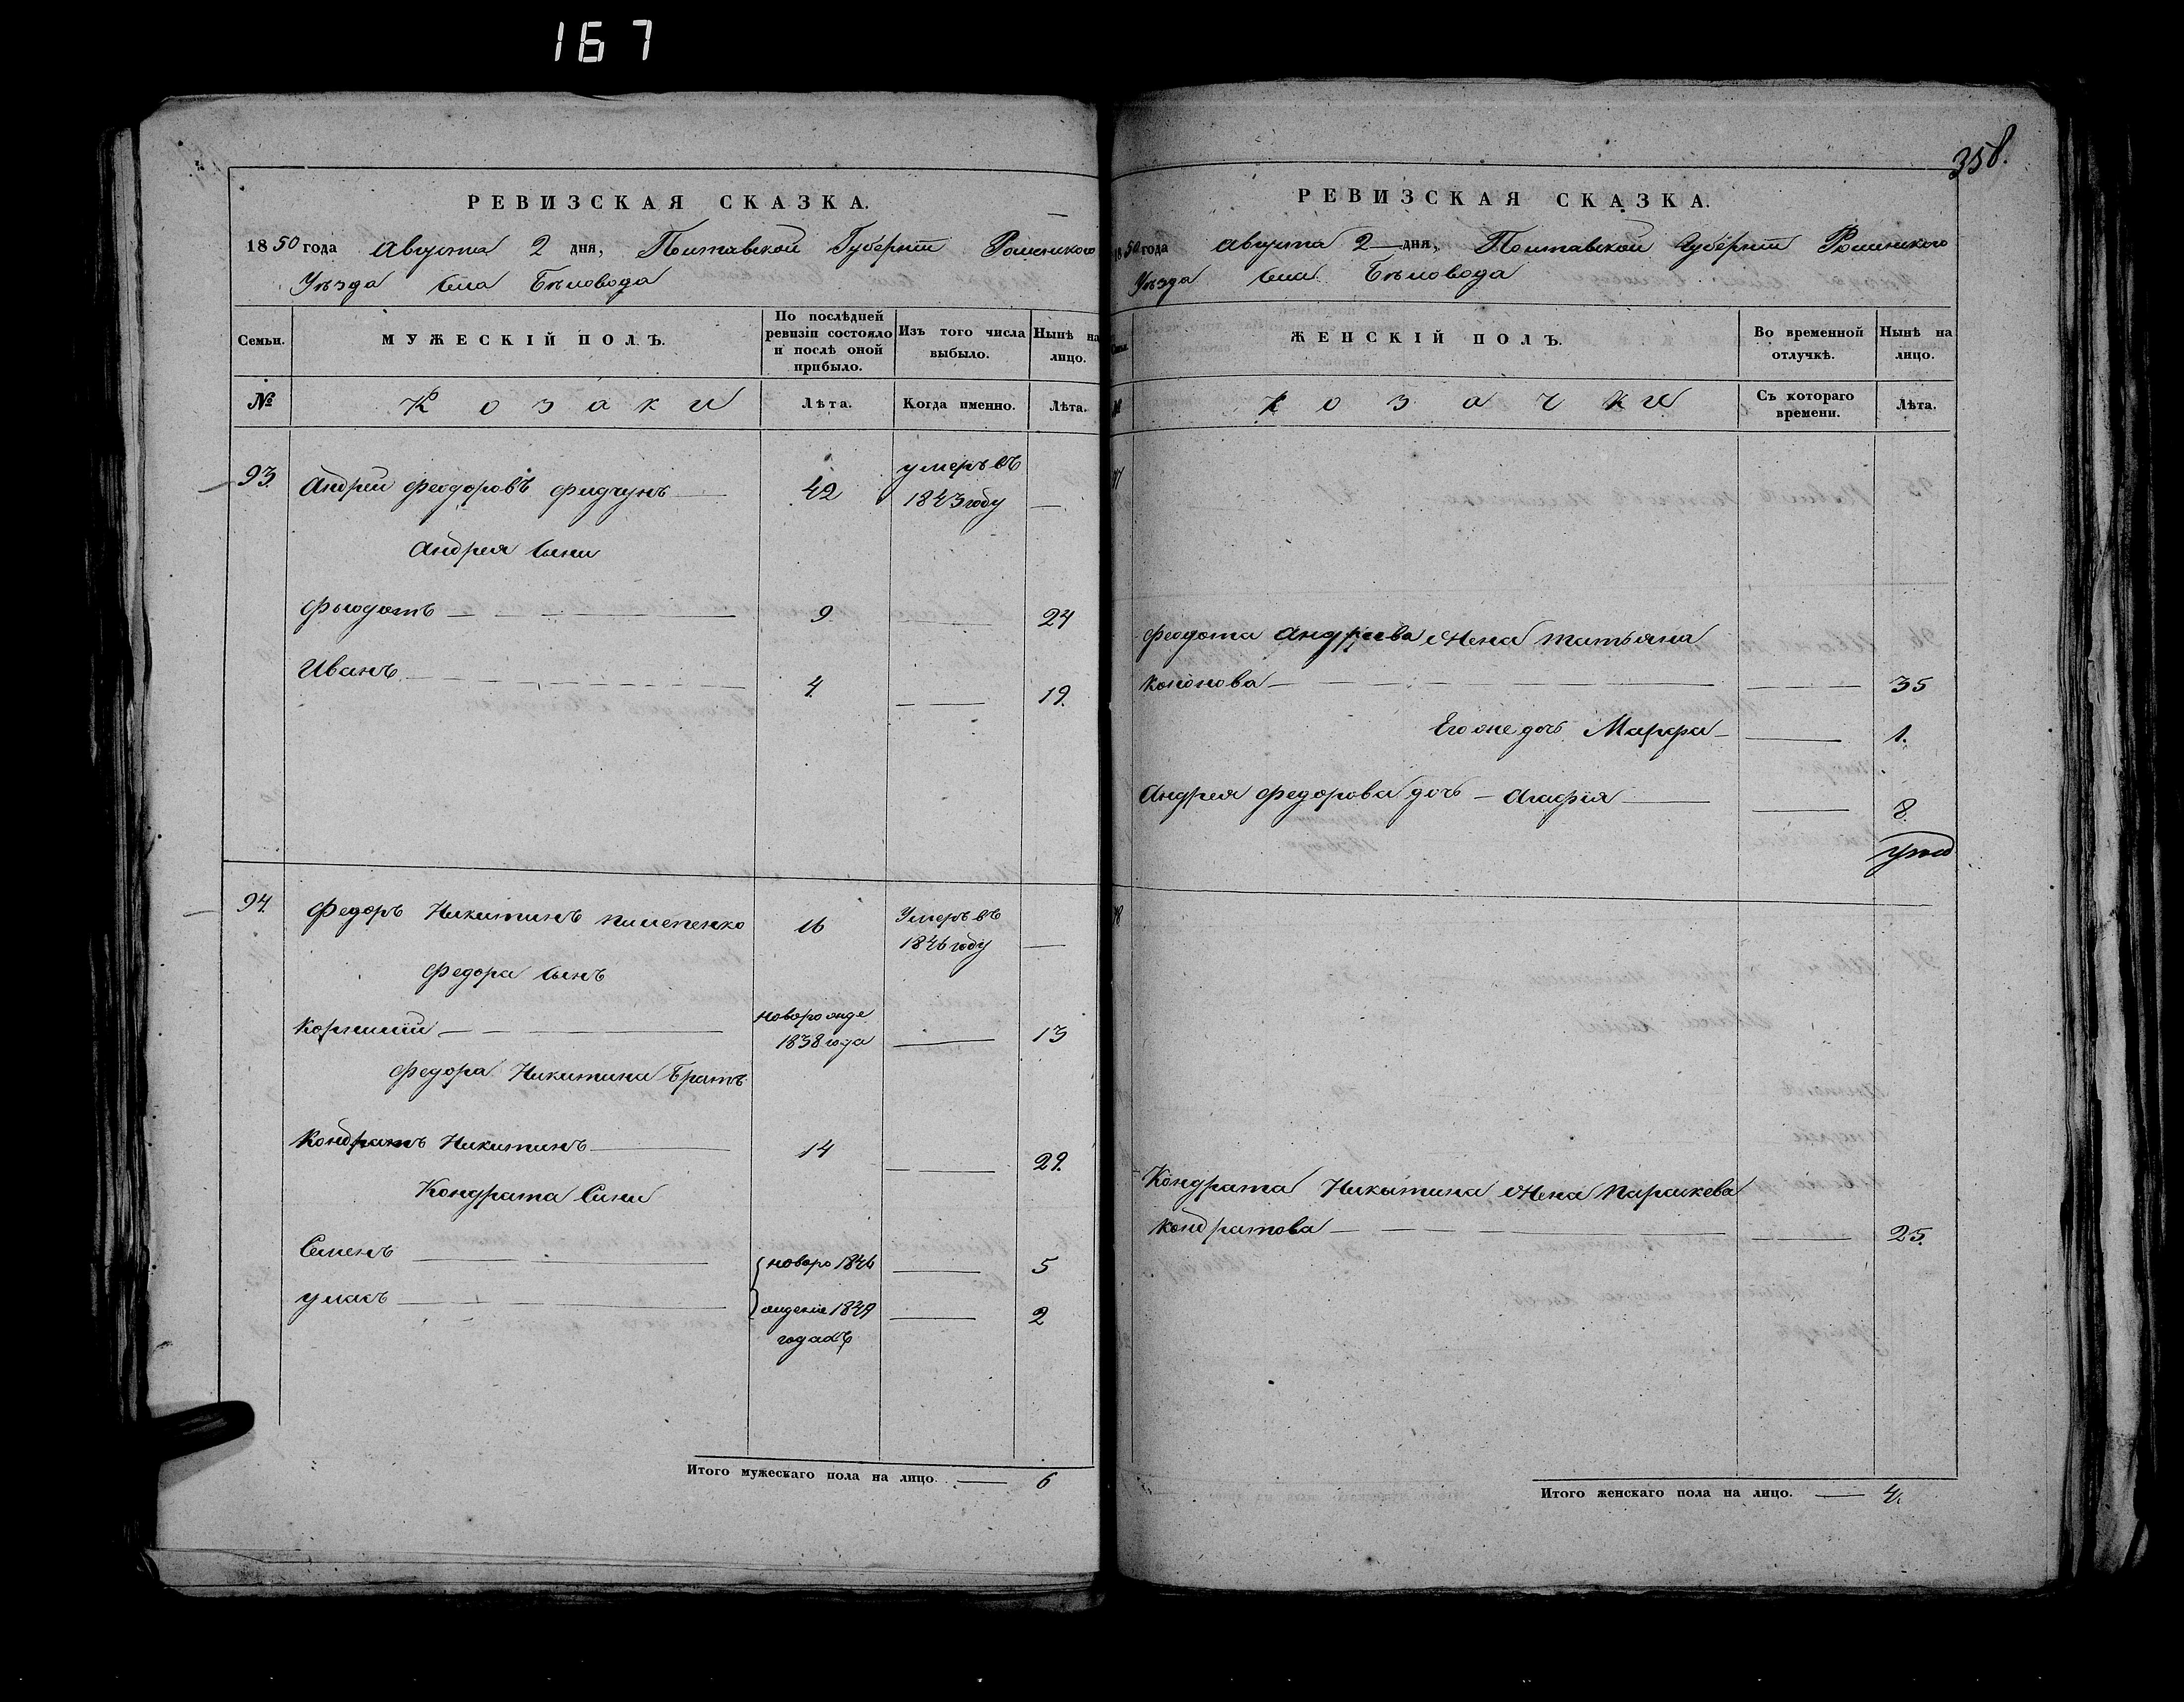 167
РЕВИЗСКАЯ СКАЗКА.
1850 года Августа 2 дня, Полтавской Губернии Роменского
Уѣзда села Бѣловода
Семьи.
МУЖЕСКІЙ ПОЛЪ.
По послѣдней ревизіи состояло и послѣ оной прибыло.
Изъ того числа выбыло.
Нынѣ на лицо.
№
Козаки
Лѣта.
Когда именно.
Лѣта.
93. Андрей Феодоровъ 42 умеръ въ 1843 году —
Андрея сыни
Фьодотъ 9 24
Иванъ 4 19.
94. Федоръ Никитинъ 16 Умеръ въ 1846 году —
Федора сынъ
Корнилій новорожде 1838 года 13
Федора Никитина братъ
Кондратъ Никитинъ 14 29.
Кондрата Сини
Семенъ новоро 1846 5
рождение 1849 2
годахъ
Итого мужескаго пола на лицо. — 6
358.
РЕВИЗСКАЯ СКАЗКА.
1850 года Августа 2 дня, Полтавской Губернии Роменского
Уѣзда села Бѣловода
ЖЕНСКІЙ ПОЛЪ.
Во временной отлучкѣ.
Нынѣ на лицо.
Козачки
Съ котораго времени.
Лѣта.
Феодота Андреева жена Татьяна
Кононова 35
Его же дочь Марфа 1.
Андрея Федорова дочь — Агафія 8.
Кондрата Никытина жена Параскева
Кондратова 25.
Итого женскаго пола на лицо. — 4.